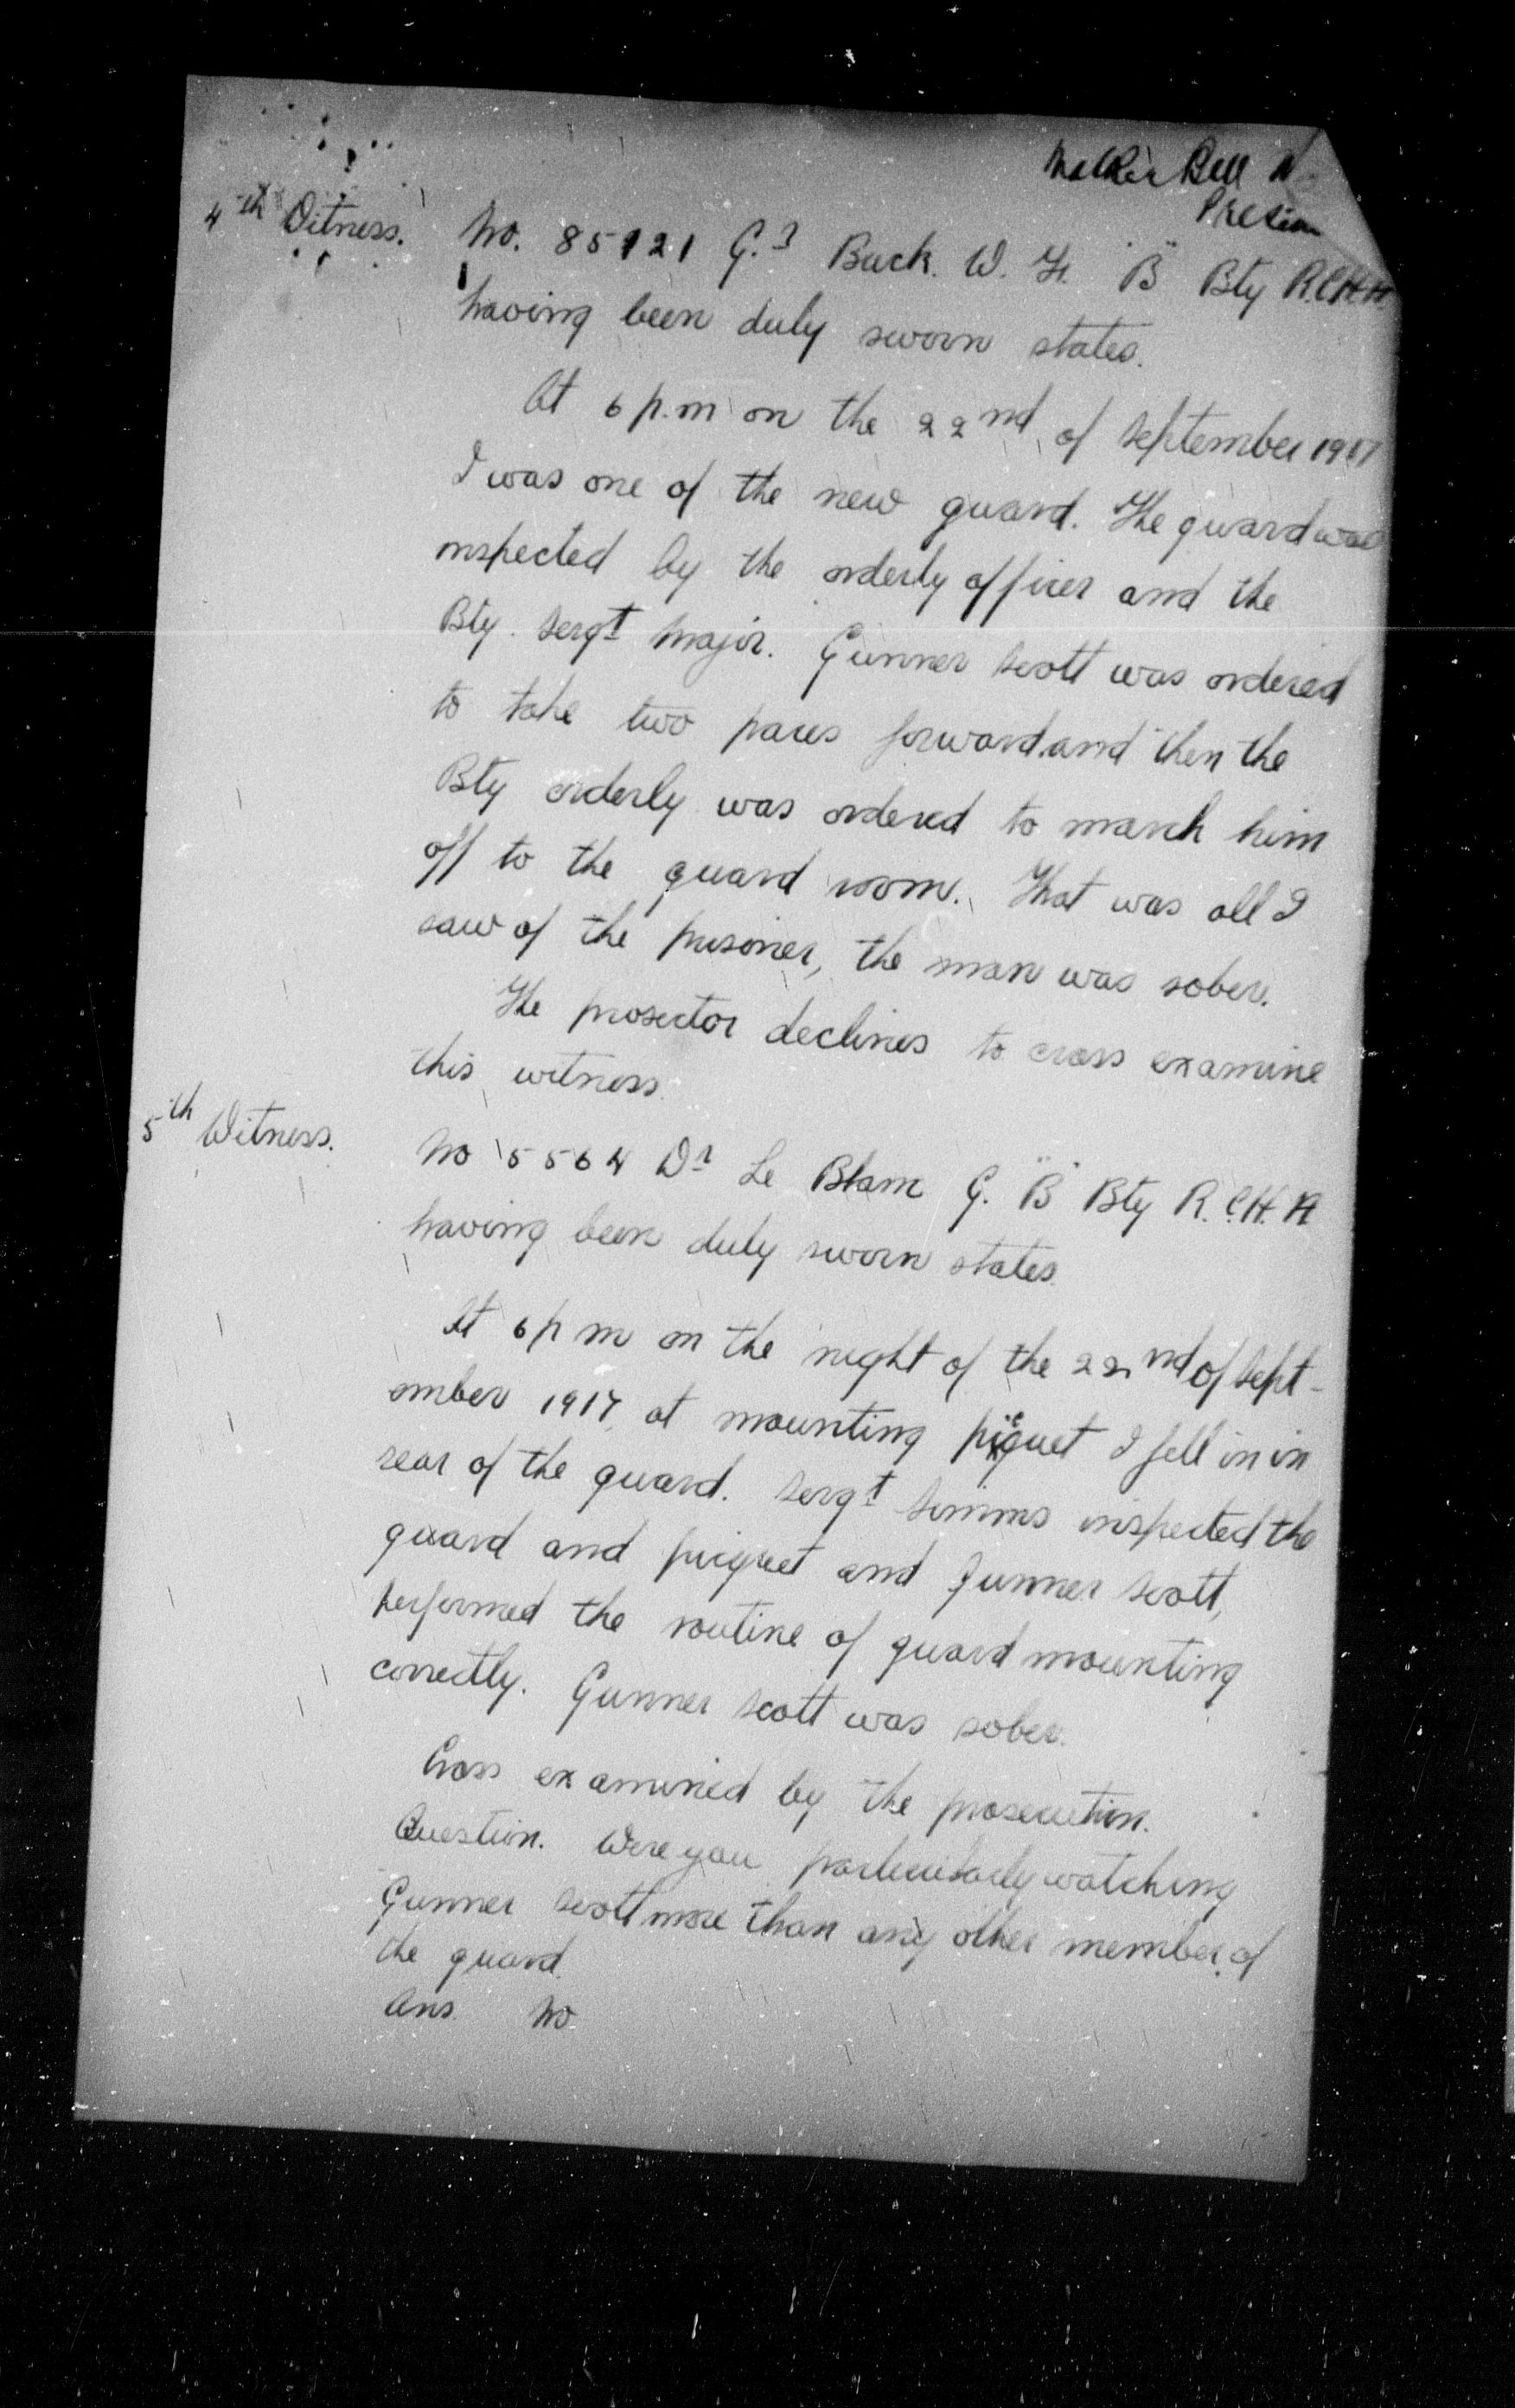 Bell
4th Witness. No. 85121 Gr Buck. W. H. "B" Bty R.C.H.A.
having been duly sworn states.
At 6 p.m on the 22nd of September 1917
I was one of the new guard. The guard was
inspected by the orderly officer and the
Bty. Sergt Major. Gunner Scott was ordered
to take two paces forward and then the
Bty orderly was ordered to march him
off to the guard room. That was all I
saw of the prisoner, the man was sober.
The prosector declines to cross examine
this witness.
5th Witness. No 5564 Dr Le Blanc G. "B" Bty R.C.H.A
having been duly sworn states.
At 6 p m on the night of the 22nd of Sept-
ember 1917, at mounting picquet I fell in in
rear of the guard. Sergt Simms inspected the
guard and picquet and Gunner Scott,
performed the routine of guard mounting
correctly. Gunner Scott was sober.
Cross examined by the prosecution.
Question. Were you particularly watching
Gunner Scott more than any other member of
the guard.
Ans. No.